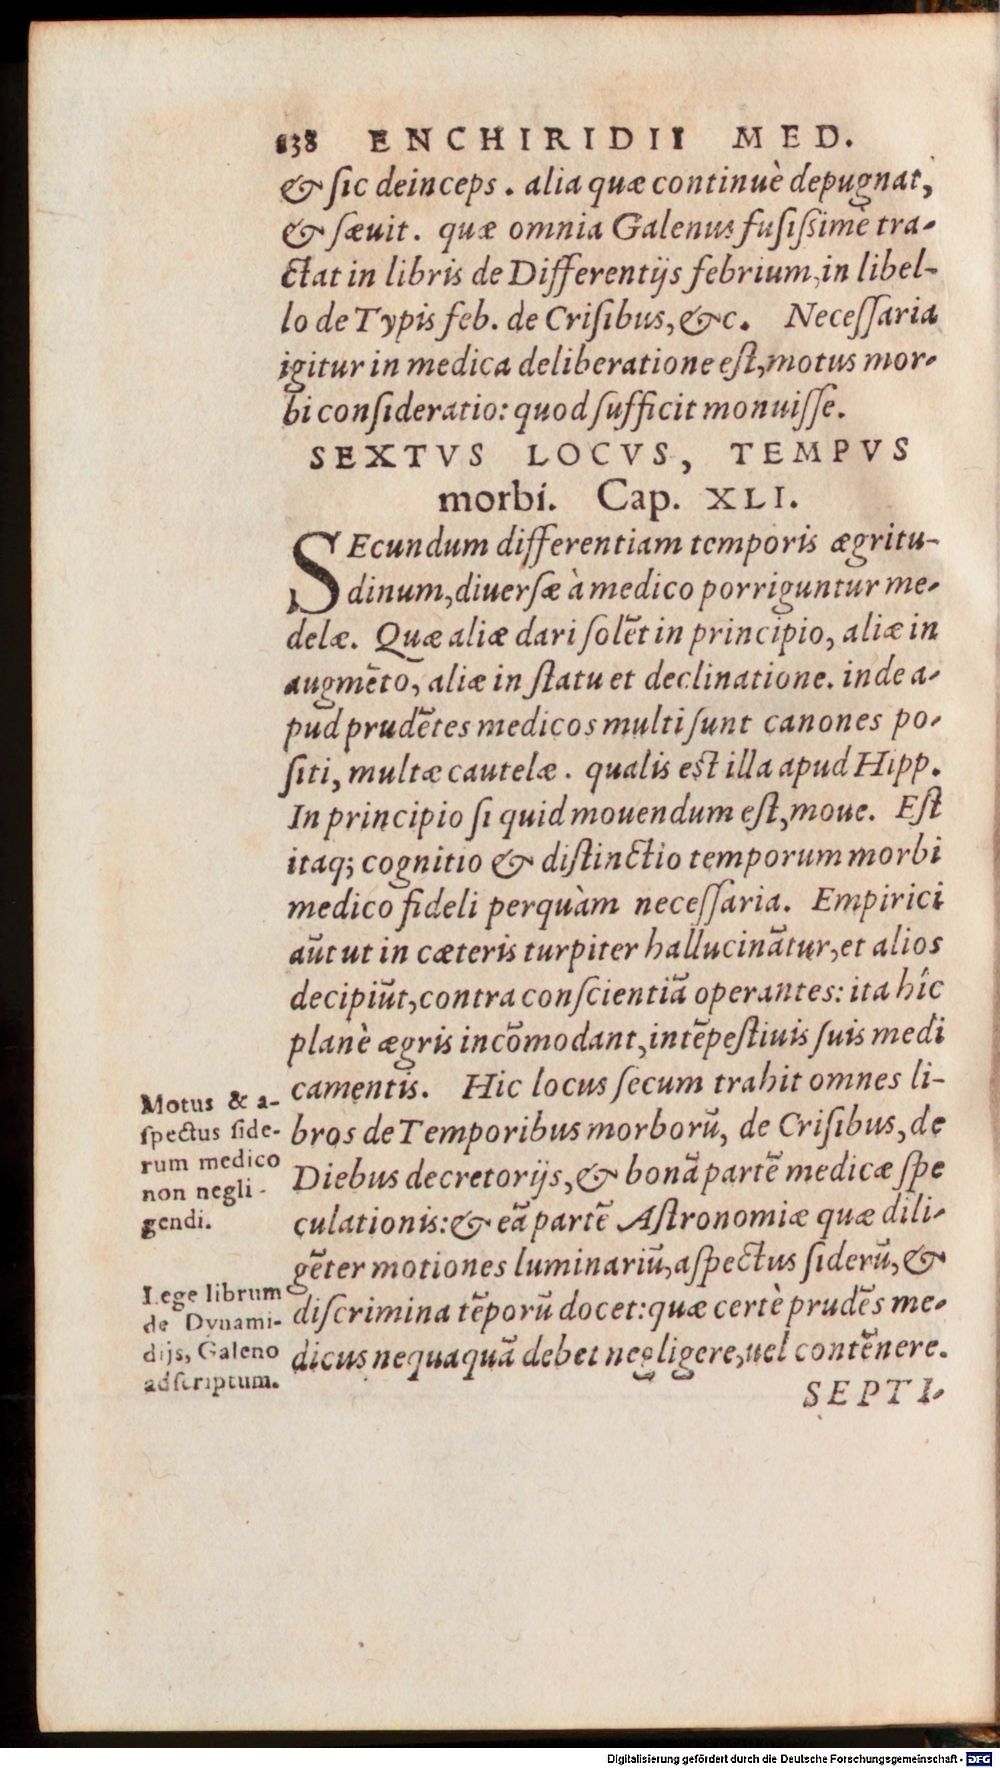 138 ENCHIRIDII MED.
& ſic deinceps. alia quæ continuè depugnat,
& ſæuit. quæ omnia Galenus fuſiſsimè tra-
ctat in libris de Differentijs febrium, in libel-
lo de Typis feb. de Criſibus, &c. Neceſſaria
igitur in medica deliberatione eſt, motus mor-
bi conſideratio: quod ſufficit monuiſſe.
SEXTVS LOCVS, TEMPVS
morbi. Cap. XLI.
SEcundum differentiam temporis ægritu-
dinum, diuerſæ à medico porriguntur me-
delæ. Quæ aliæ dari ſolẽt in principio, aliæ in
augmẽto, aliæ in ſtatu et declinatione. inde a-
pud prudẽtes medicos multi ſunt canones po-
ſiti, multæ cautelæ. qualis est illa apud Hipp.
In principio ſi quid mouendum eſt, moue. Eſt
itaq; cognitio & diſtinctio temporum morbi
medico fideli perquàm neceſſaria. Empirici
aũt ut in cæteris turpiter hallucinãtur, et alios
decipiũt, contra conſcientiã operantes: ita hîc
planè ægris incõmodant, intẽpeſtiuis ſuis medi
camentis. Hic locus ſecum trahit omnes li-
bros de Temporibus morborũ, de Criſibus, de
Diebus decretorijs, & bonã partẽ medicæ ſpe
culationis: & eã partẽ Aſtronomiæ quæ dili-
gẽter motiones luminariũ, aſpectus ſiderũ, &
diſcrimina tẽporũ docet: quæ certè prudẽs me-
dicus nequaquã debet negligere, uel contẽnere.
SEPTI-
Motus & a-
ſpectus ſide-
rum medico
non negli-
gendi.
Lege librum
de Dynami-
dijs, Galeno
adſcriptum.
Digitalisierung gefördert durch die Deutsche Forschungsgemeinschaft - DFG